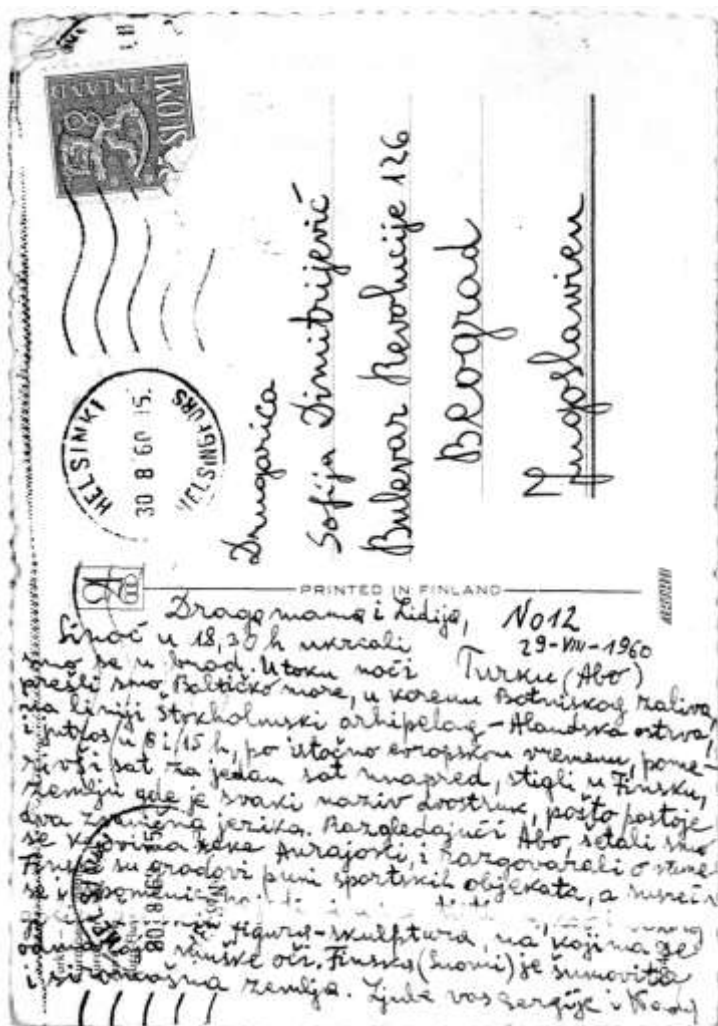 SUOMI
FINLAND
HELSINKI
30 8 60 15.
HELSINGFORS
Drugarica
Sofija Dimitrijević
Bulevar Revolucije 126
Beograd
Jugoslawien
PRINTED IN FINLAND
No12
29-VIII-1960
Turku (Abo)
Draga mama i Lidija,
Sinoć u 18,30 h ukrcali
smo se u brod. U toku noći
prešli smo Baltičko more, u korenu Botniskog zaliva,
na liniji Štokholmski arhipelag - Alandska ostrva,
i jutros u 8 i 15 h, po istočno evropskom vremenu, pome-
rivši sat za jedan sat unapred, stigli u Finsku,
zemlju gde je svaki naziv dvostruk, pošto postoje
dva zvanična jezika. Razgledajući Abo, šetali smo
se reke Aurajoki, i razgovarali o
su gradovi puni sportskih objekata, a
se
figura-skulptura, na kojima se
oči. Finska (Suomi) je šumovita
i siromašna zemlja. Ljube vas Sergije i